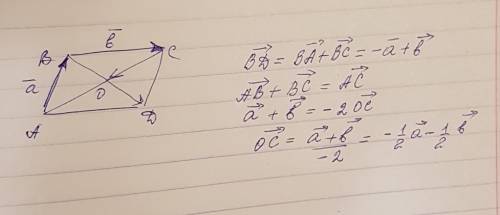 b̅
B
C
a̅
O
A
D
B͞D⃗ = B͞A⃗ + B͞C⃗ = -a⃗ + b⃗
A͞B⃗ + B͞C⃗ = A͞C⃗
a⃗ + b⃗ = -2 O͞C⃗
O͞C⃗ = (a⃗ + b⃗)/-2 = -1/2 a⃗ - 1/2 b⃗